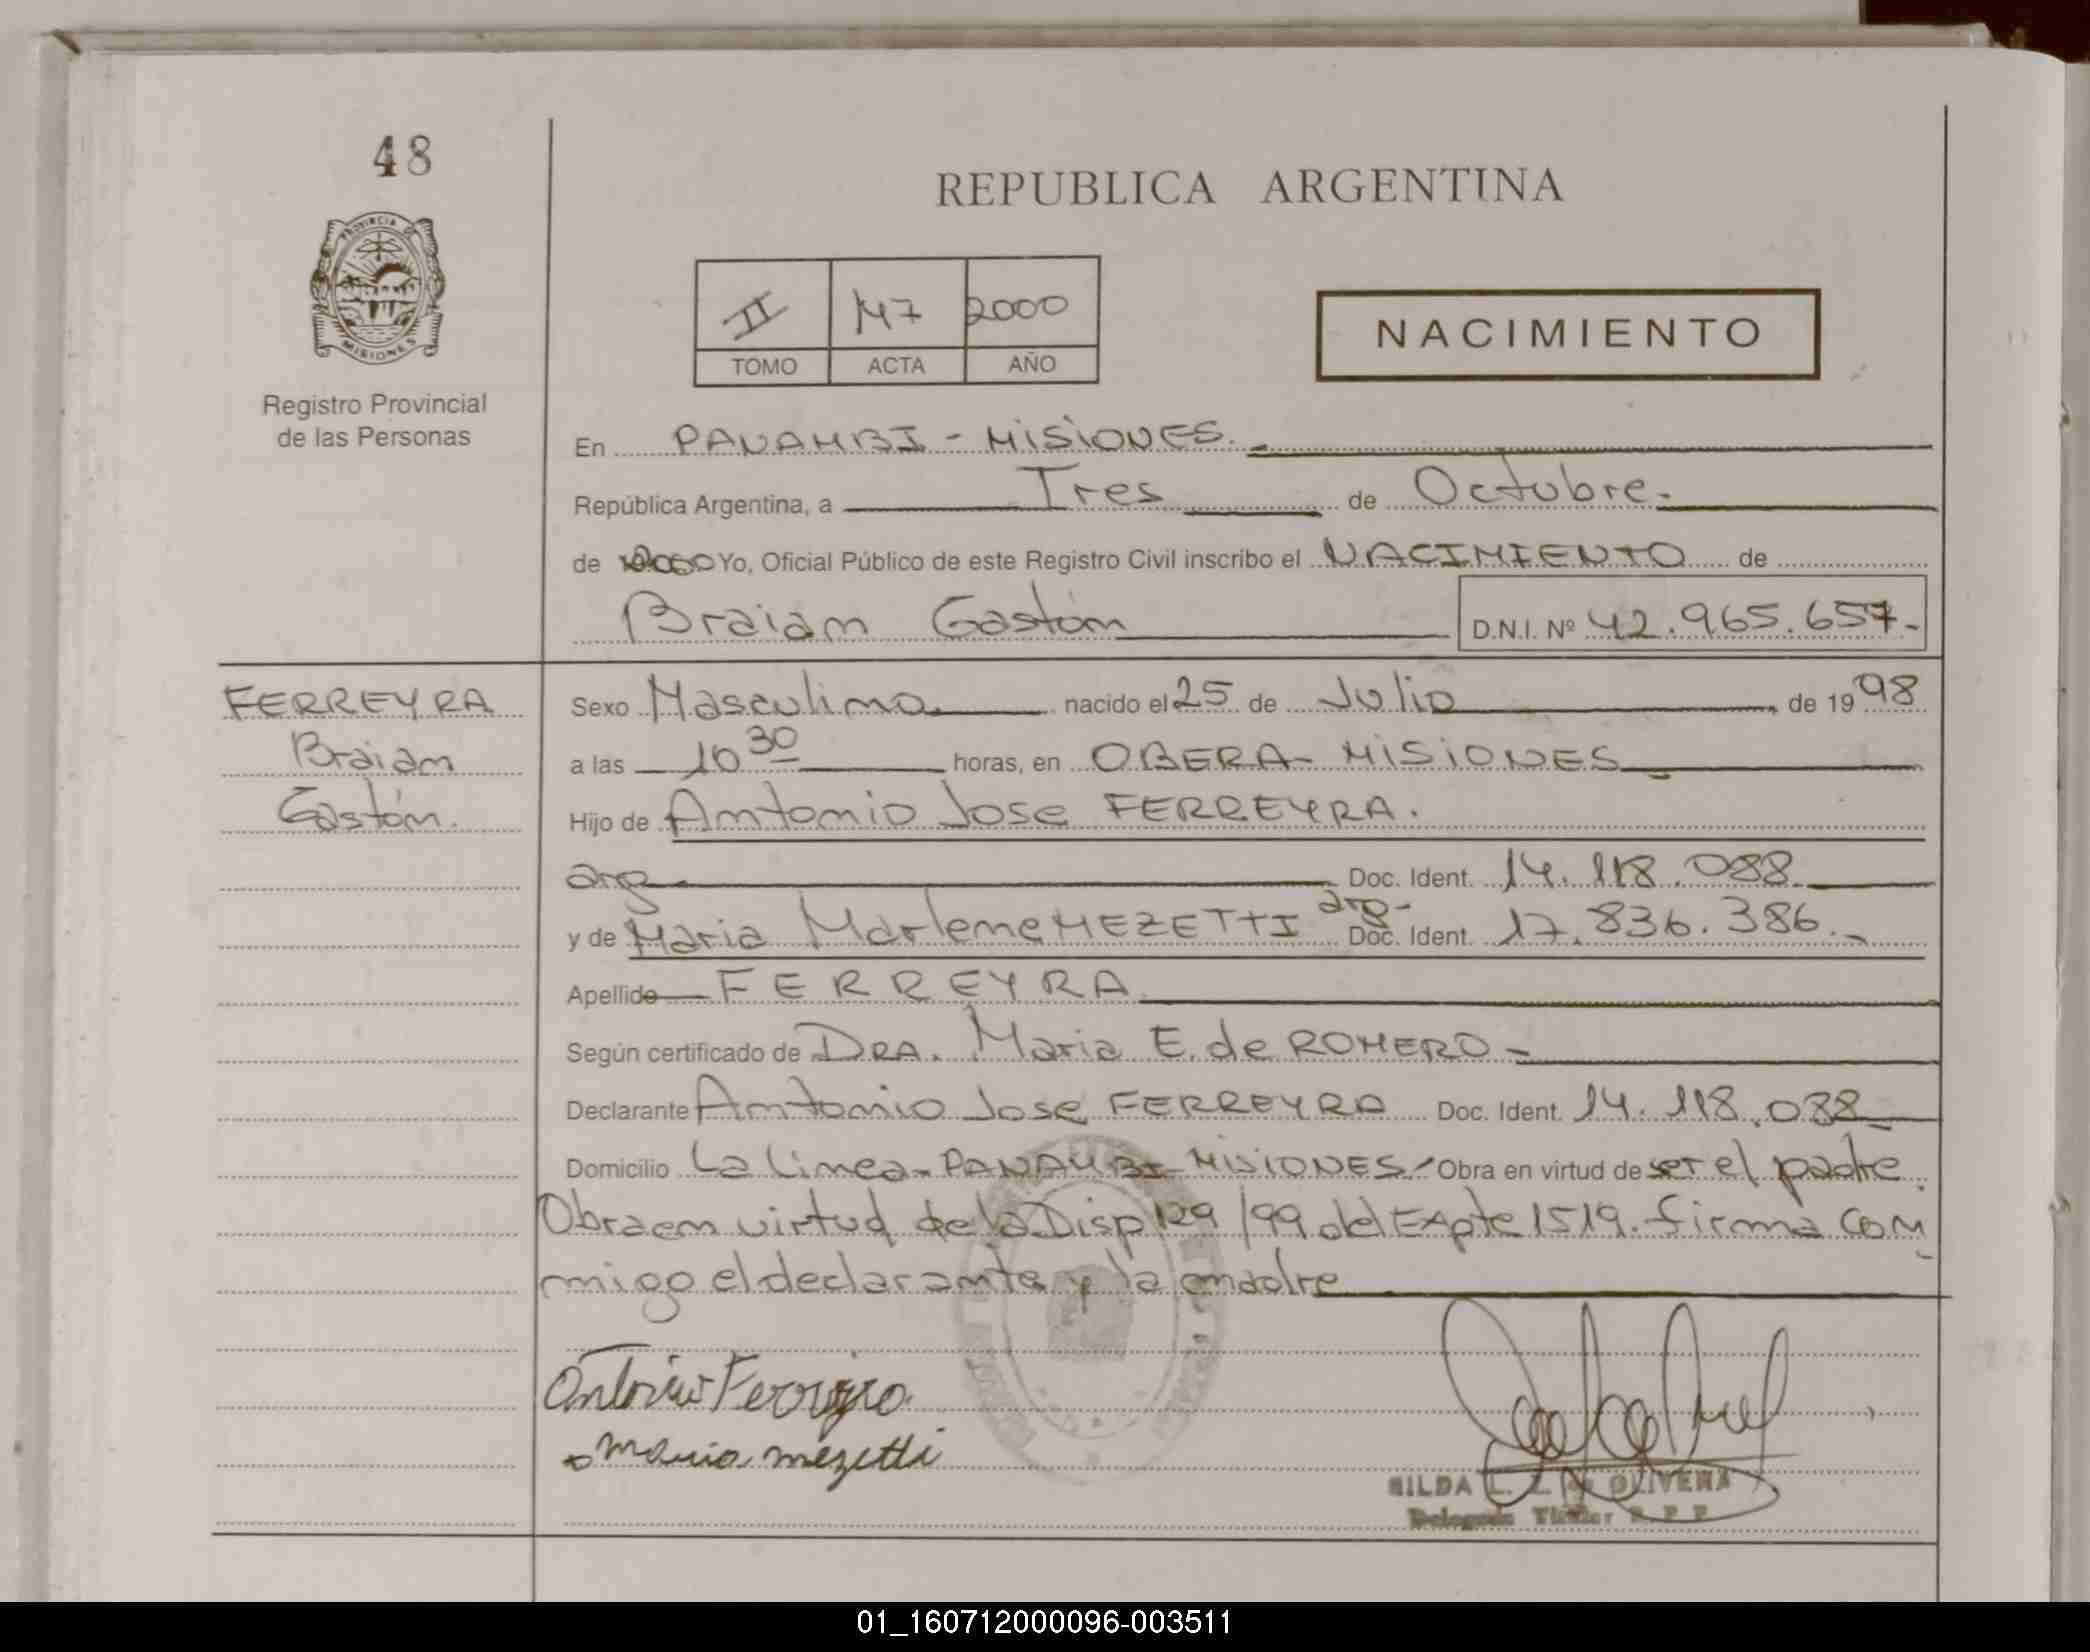 48
REPUBLICA ARGENTINA
PROVINCIA DE
MISIONES
Registro Provincial
de las Personas
II 147 2000
TOMO ACTA AÑO
NACIMIENTO
En PANAMBI - MISIONES.
República Argentina, a Tres de Octubre.
de 2000 Yo, Oficial Público de este Registro Civil inscribo el NACIMIENTO de
Braian Gastón D.N.I. Nº 42.965.657.-
FERREYRA
Braian
Gastón.
Sexo Masculino nacido el 25 de Julio de 1998
a las 10 30 horas, en OBERA - MISIONES
Hijo de Antonio Jose FERREYRA.
arg Doc. Ident. 14.118.088
y de Maria Marlene MEZETTI arg- Doc. Ident. 17.836.386.-
Apellido FERREYRA
Según certificado de DRA. Maria E. de ROMERO -
Declarante Antonio Jose FERREYRA Doc. Ident. 14.118.088
Domicilio La Linea - PANAMBI - MISIONES / Obra en virtud de ser el padre.
Obra en virtud de la Disp 129/99 del Expte 1519. firma con
migo el declarante y la madre
Antonio Ferreyra
Maria mezetti
HILDA L. Z. de OLIVERA
Delegada Titular R. P. P.
01_160712000096-003511